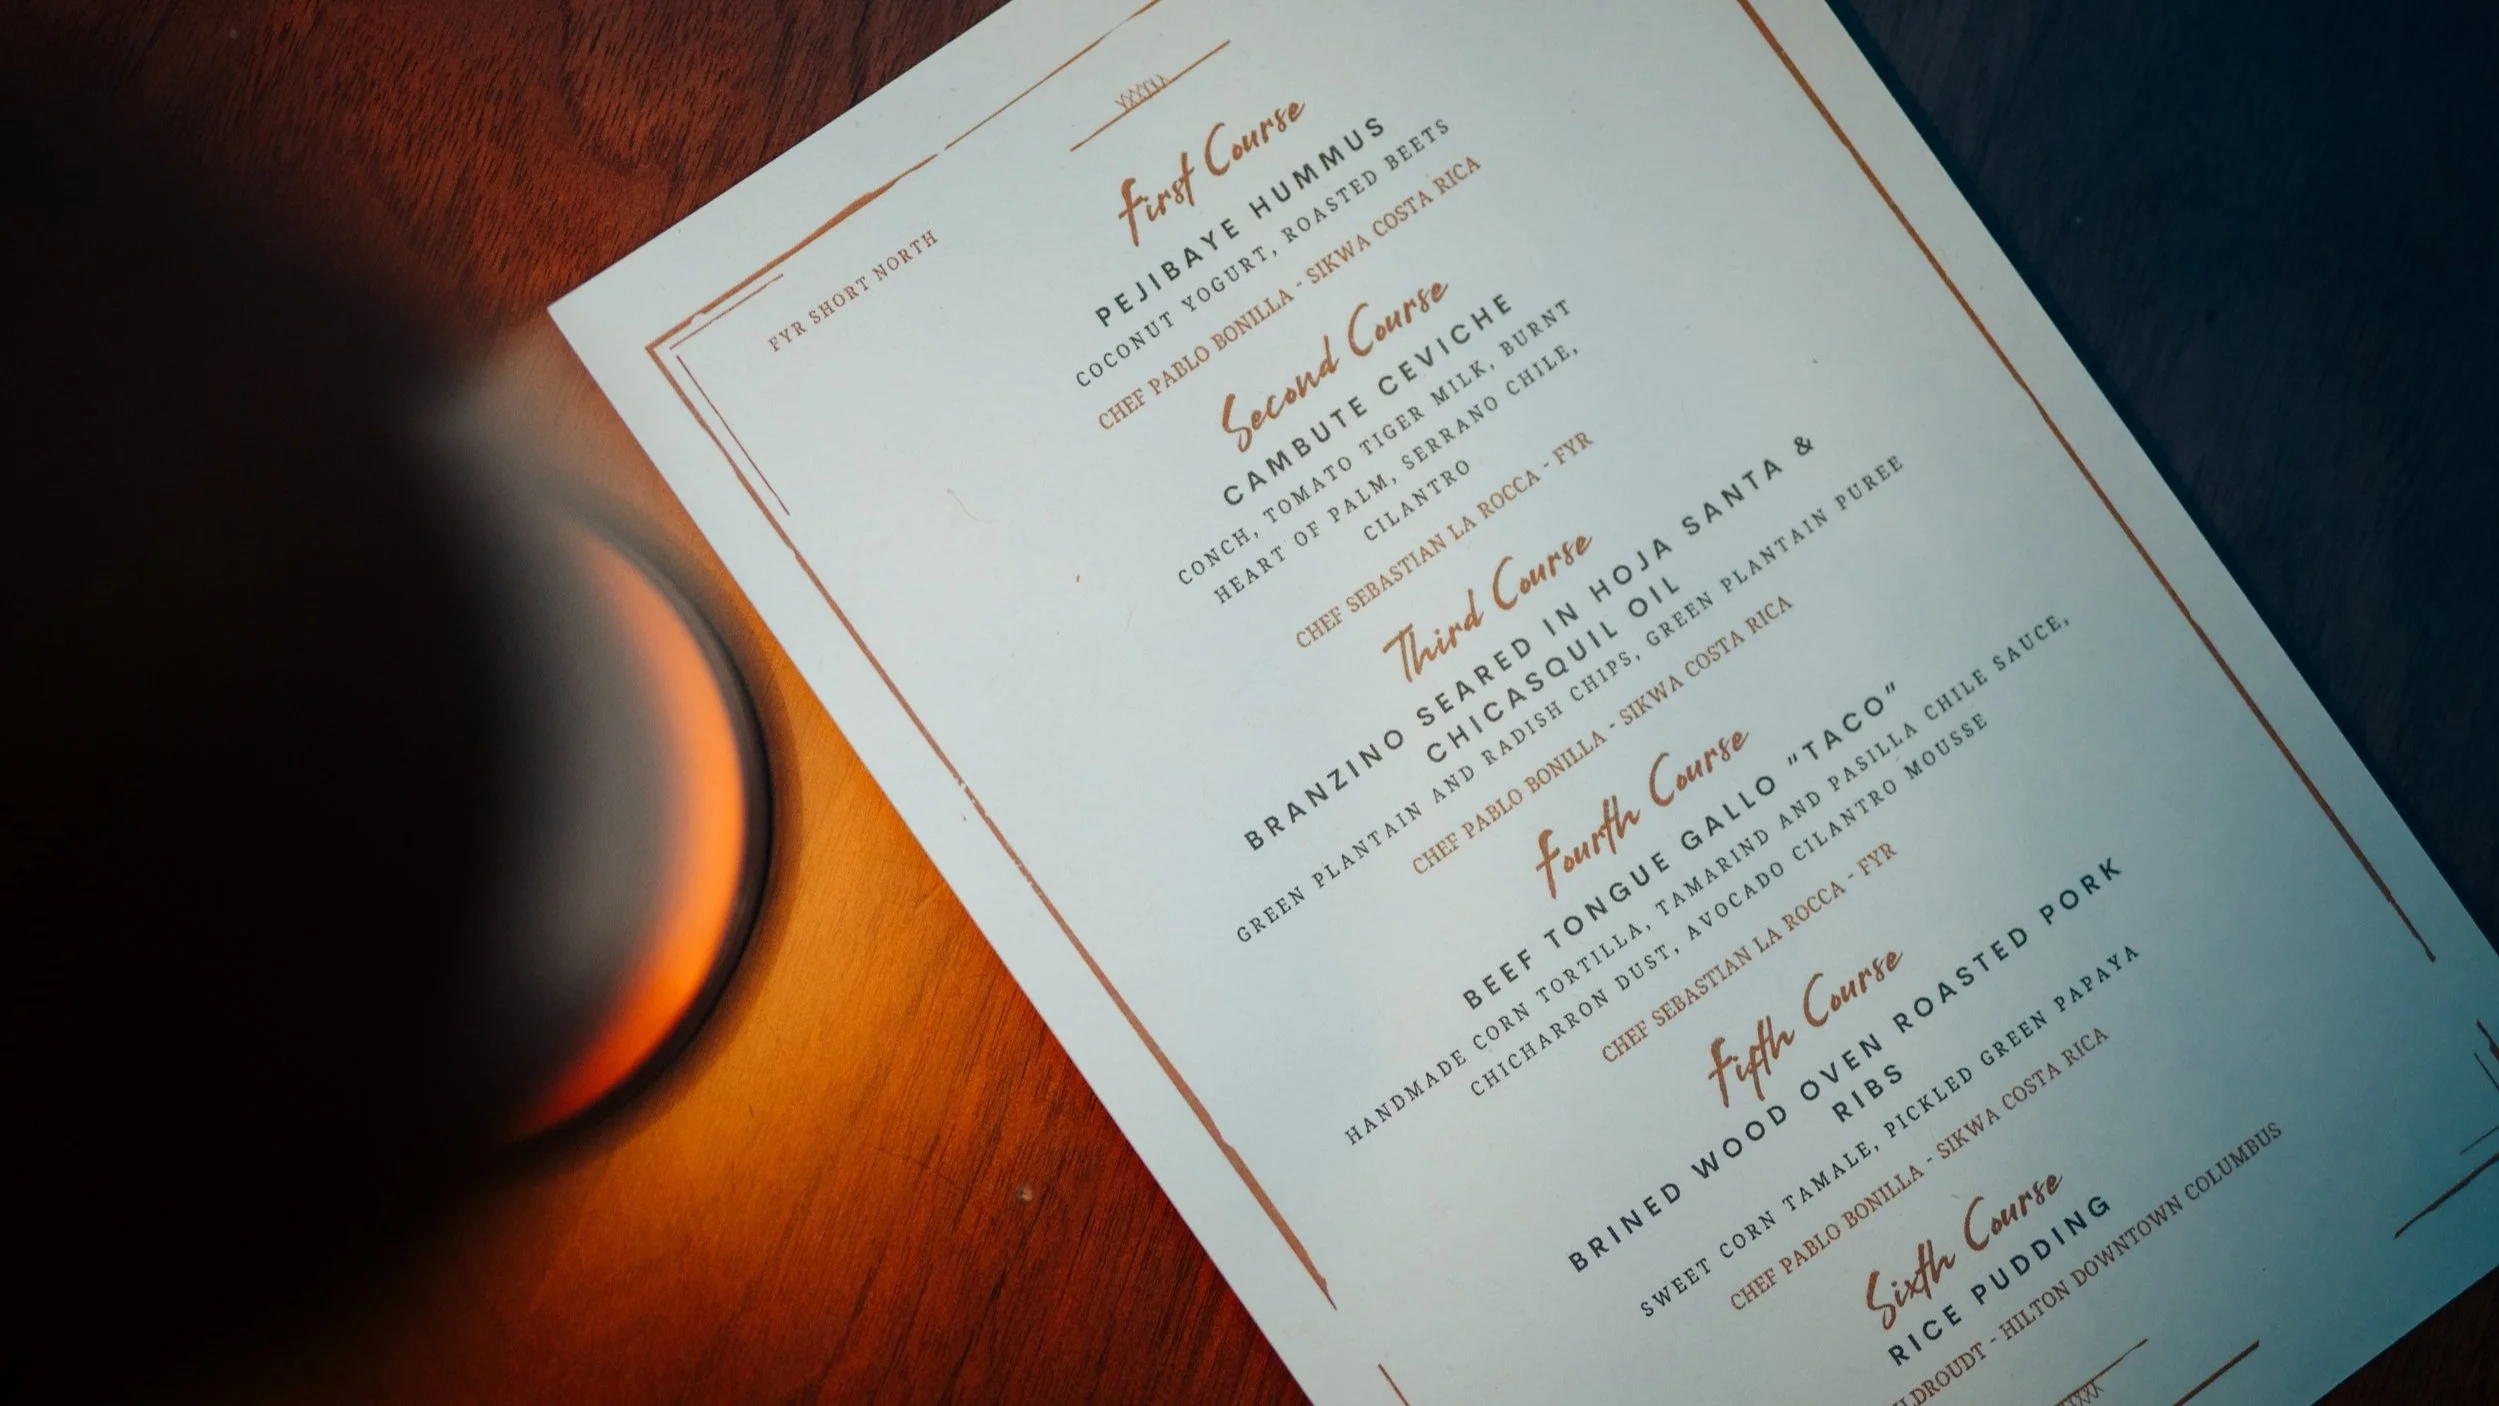 FYR SHORT NORTH
First Course
PEJIBAYE HUMMUS
COCONUT YOGURT, ROASTED BEETS
CHEF PABLO BONILLA - SIKWA COSTA RICA
Second Course
CAMBUTE CEVICHE
CONCH, TOMATO TIGER MILK, BURNT
HEART OF PALM, SERRANO CHILE,
CILANTRO
CHEF SEBASTIAN LA ROCCA - FYR
Third Course
BRANZINO SEARED IN HOJA SANTA &
CHICASQUIL OIL
GREEN PLANTAIN AND RADISH CHIPS, GREEN PLANTAIN PUREE
CHEF PABLO BONILLA - SIKWA COSTA RICA
Fourth Course
BEEF TONGUE GALLO "TACO"
HANDMADE CORN TORTILLA, TAMARIND AND PASILLA CHILE SAUCE,
CHICHARRON DUST, AVOCADO CILANTRO MOUSSE
CHEF SEBASTIAN LA ROCCA - FYR
Fifth Course
BRINED WOOD OVEN ROASTED PORK
RIBS
SWEET CORN TAMALE, PICKLED GREEN PAPAYA
CHEF PABLO BONILLA - SIKWA COSTA RICA
Sixth Course
RICE PUDDING
LDROUDT - HILTON DOWNTOWN COLUMBUS